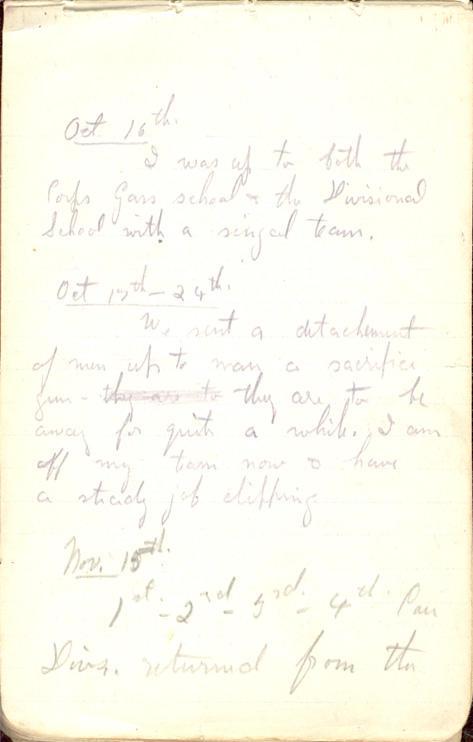 Oct 16th.
I was up to both the
Corps Gass school & the Divisional
School with a singal team.
Oct 17th - 24th.
We sent a detachement
of men up to man a sacrifice
gun - they are to they are to be
away for quite a while. I am
off my team now & have
a steady job clipping
Nov. 15th.
1st - 2nd - 3rd - 4th. Can
Divs. returned from the